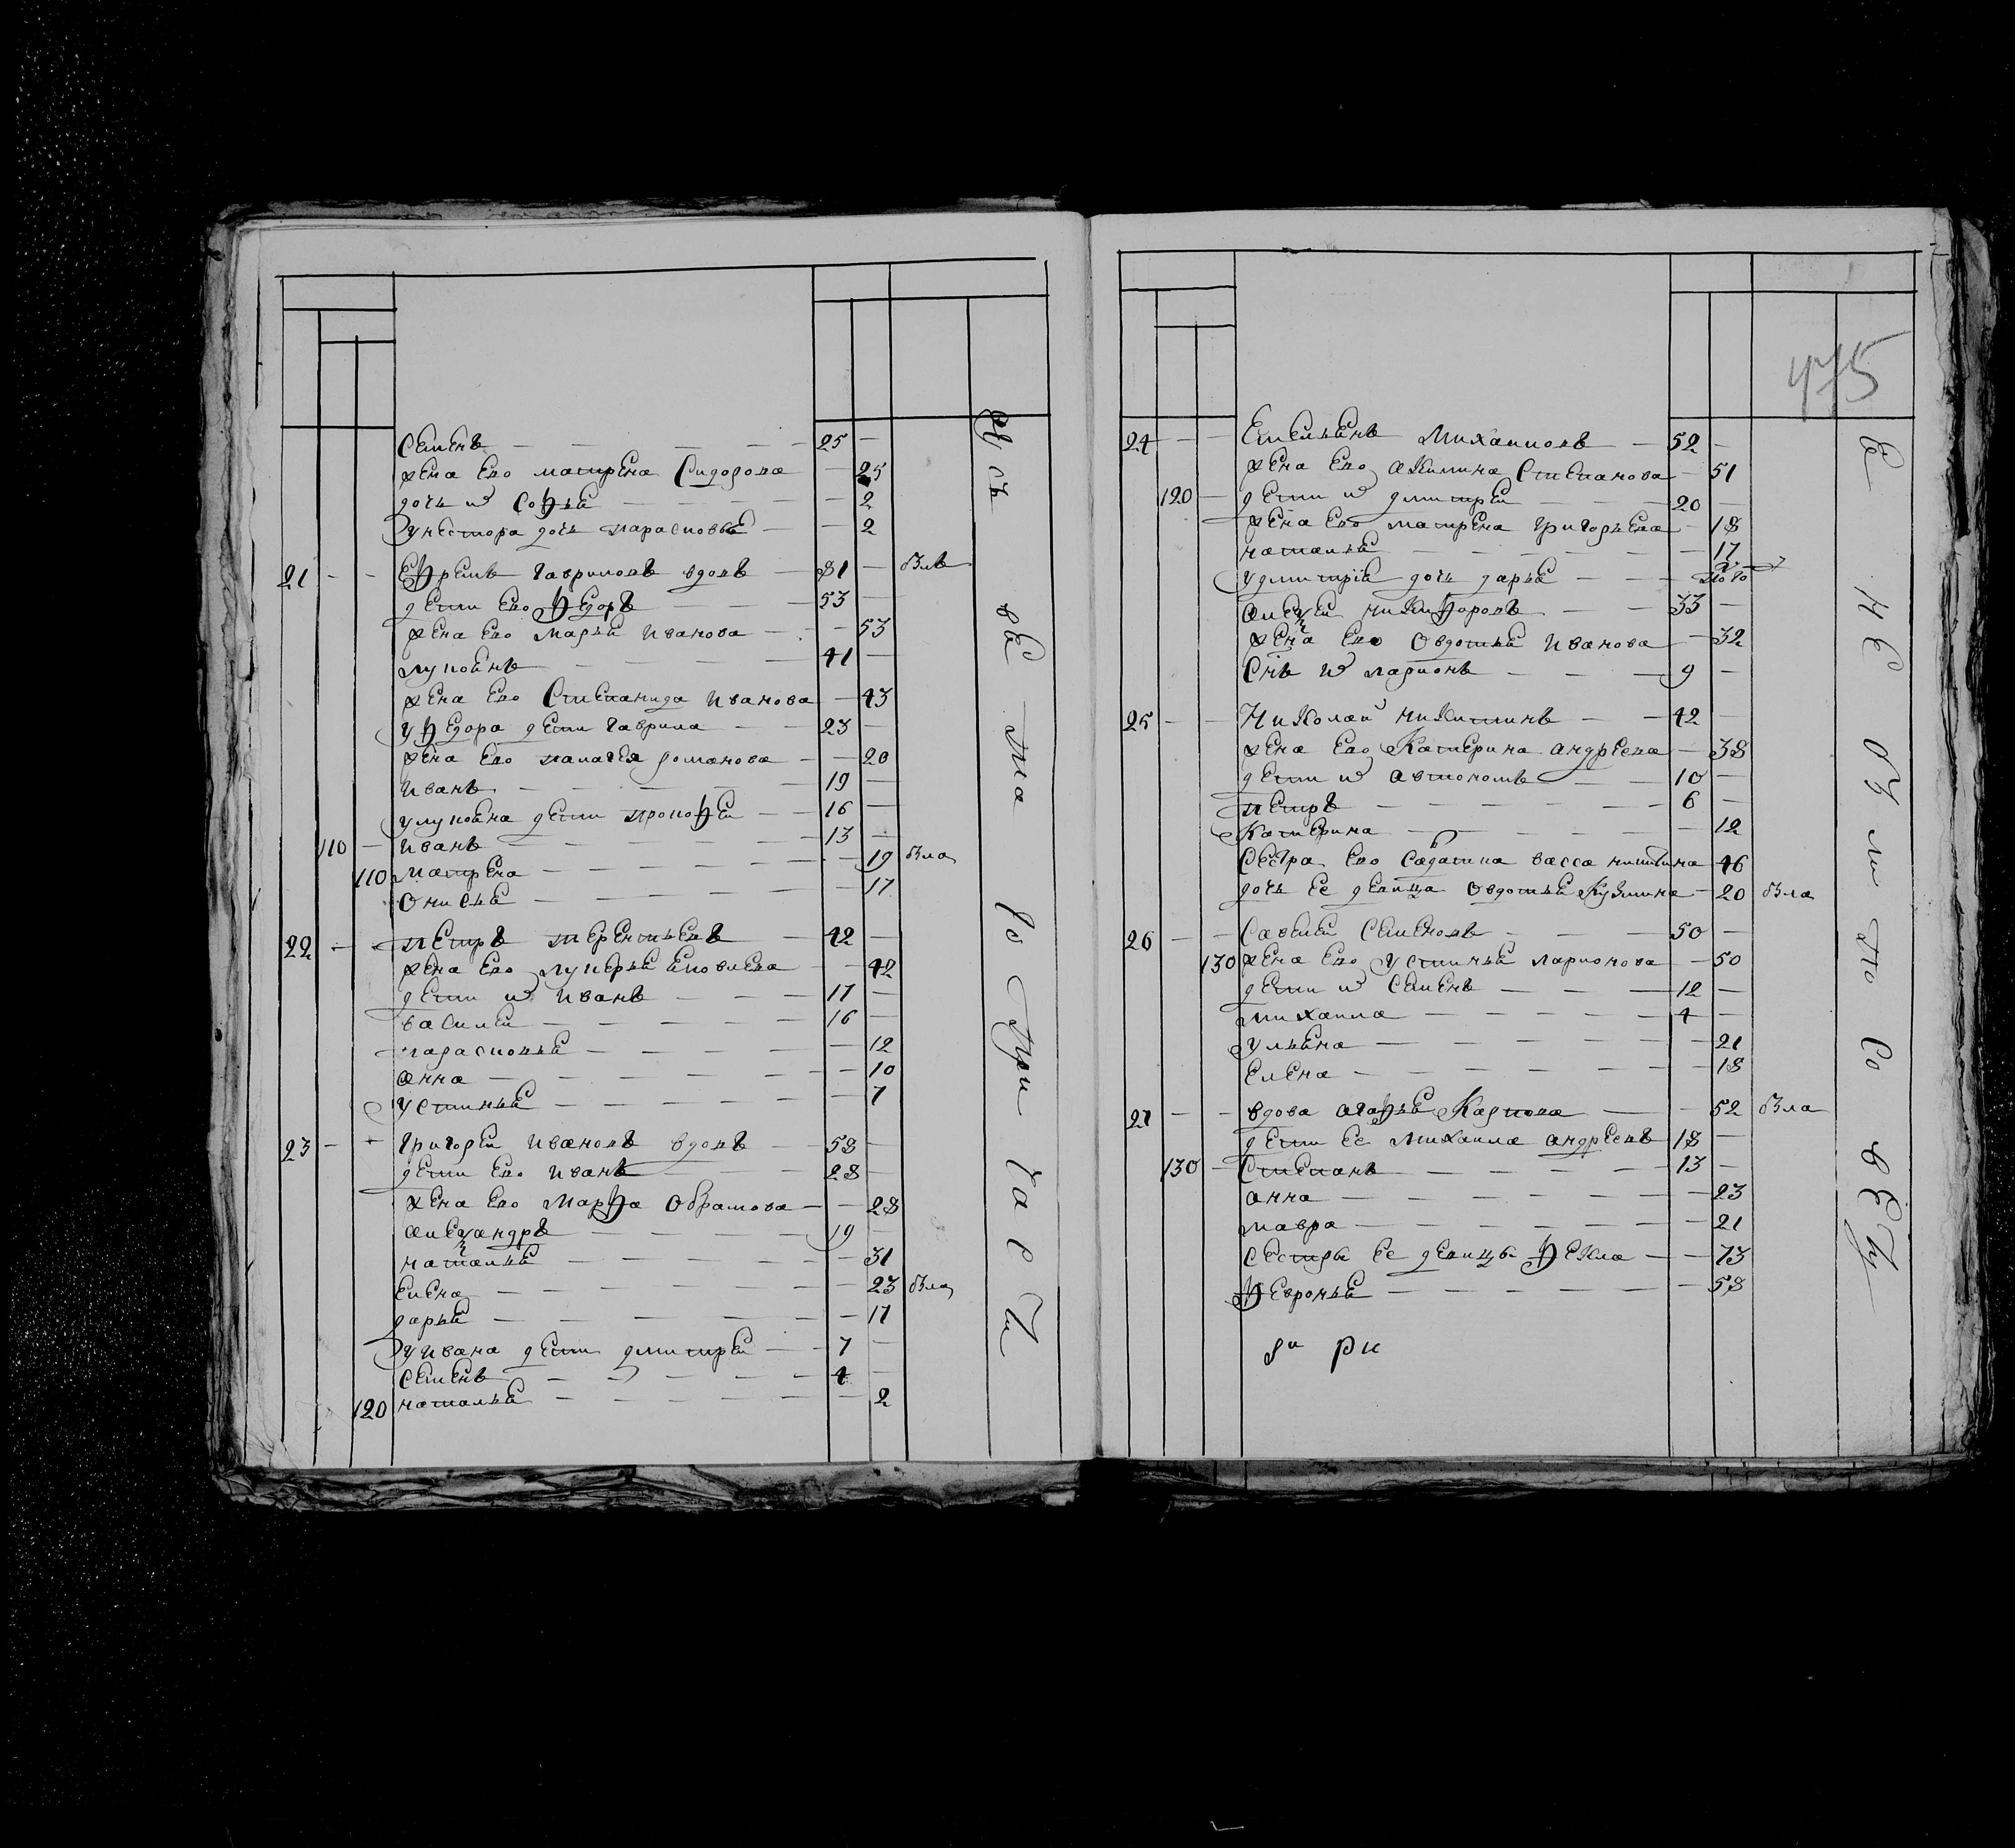 Семенъ — 25 —
жена ево матрена Сидорова — 25
дочь их Софья — 2
у нестора дочь парасковья — 2
21 — — Ефремъ гавриловъ вдовъ — 81 — былъ
дети ево федоръ — 53 —
жена ево марья иванова — 53
лупоянъ — 41 —
жена ево Степанида иванова — 43
у федора дети гаврила — 23 —
жена ево палагея романова — 20
иванъ — 19 —
у лупояна дети прокофей — 16 —
110 — иванъ — 13 —
110 матрена — 19 была
Онисья — 17
22 — — петръ терентьевъ — 42 —
жена ево лукерья яковлева — 42
дети их иванъ — 17 —
василей — 16 —
парасковья — 12
анна — 10
устинья — 7
23 — — григорей ивановъ вдовъ — 58 —
дети ево иванъ — 28 —
жена ево марфа Обрамова — 28
александръ — 19
наталья — 31
елена — 23 была
дарья — 17
у ивана дети дмитрей — 7 —
Семенъ — 4 —
120 наталья — 2
Исъ ве та ро При час ти
475
24 — — Емельянъ Михаиловъ — 52 —
жена ево акилина Степанова — 51
120 — дети их дмитрей — 20 —
жена ево матрена григорьева — 18
наталья — 17
у дмитрия дочь дарья — пол го
алексей никифоровъ — 33 —
жена ево Овдотья иванова — 32
Снъ их ларионъ — 9 —
25 — — Николай никитинъ — 42 —
жена ево Катерина андреева — 38
дети их автономъ — 10 —
петръ — 6 —
Катерина — 12
Сестра ево васса никитина 46
дочь ее девица Овдотья Кузмина — 20 была
26 — — Савелей Семеновъ — 50 —
130 жена ево устинья ларионова — 50
дети их Семенъ — 12 —
михаила — 4 —
ульяна — 21
Елена — 18
27 — — вдова агафья Карпова — 52 была
дети ее михаила андреевъ 18 —
130 — Степанъ — 13 —
анна — 23
мавра — 21
сестры ее девицы фекла — 73
февронья — 58
Ея не бы по Со ве ту